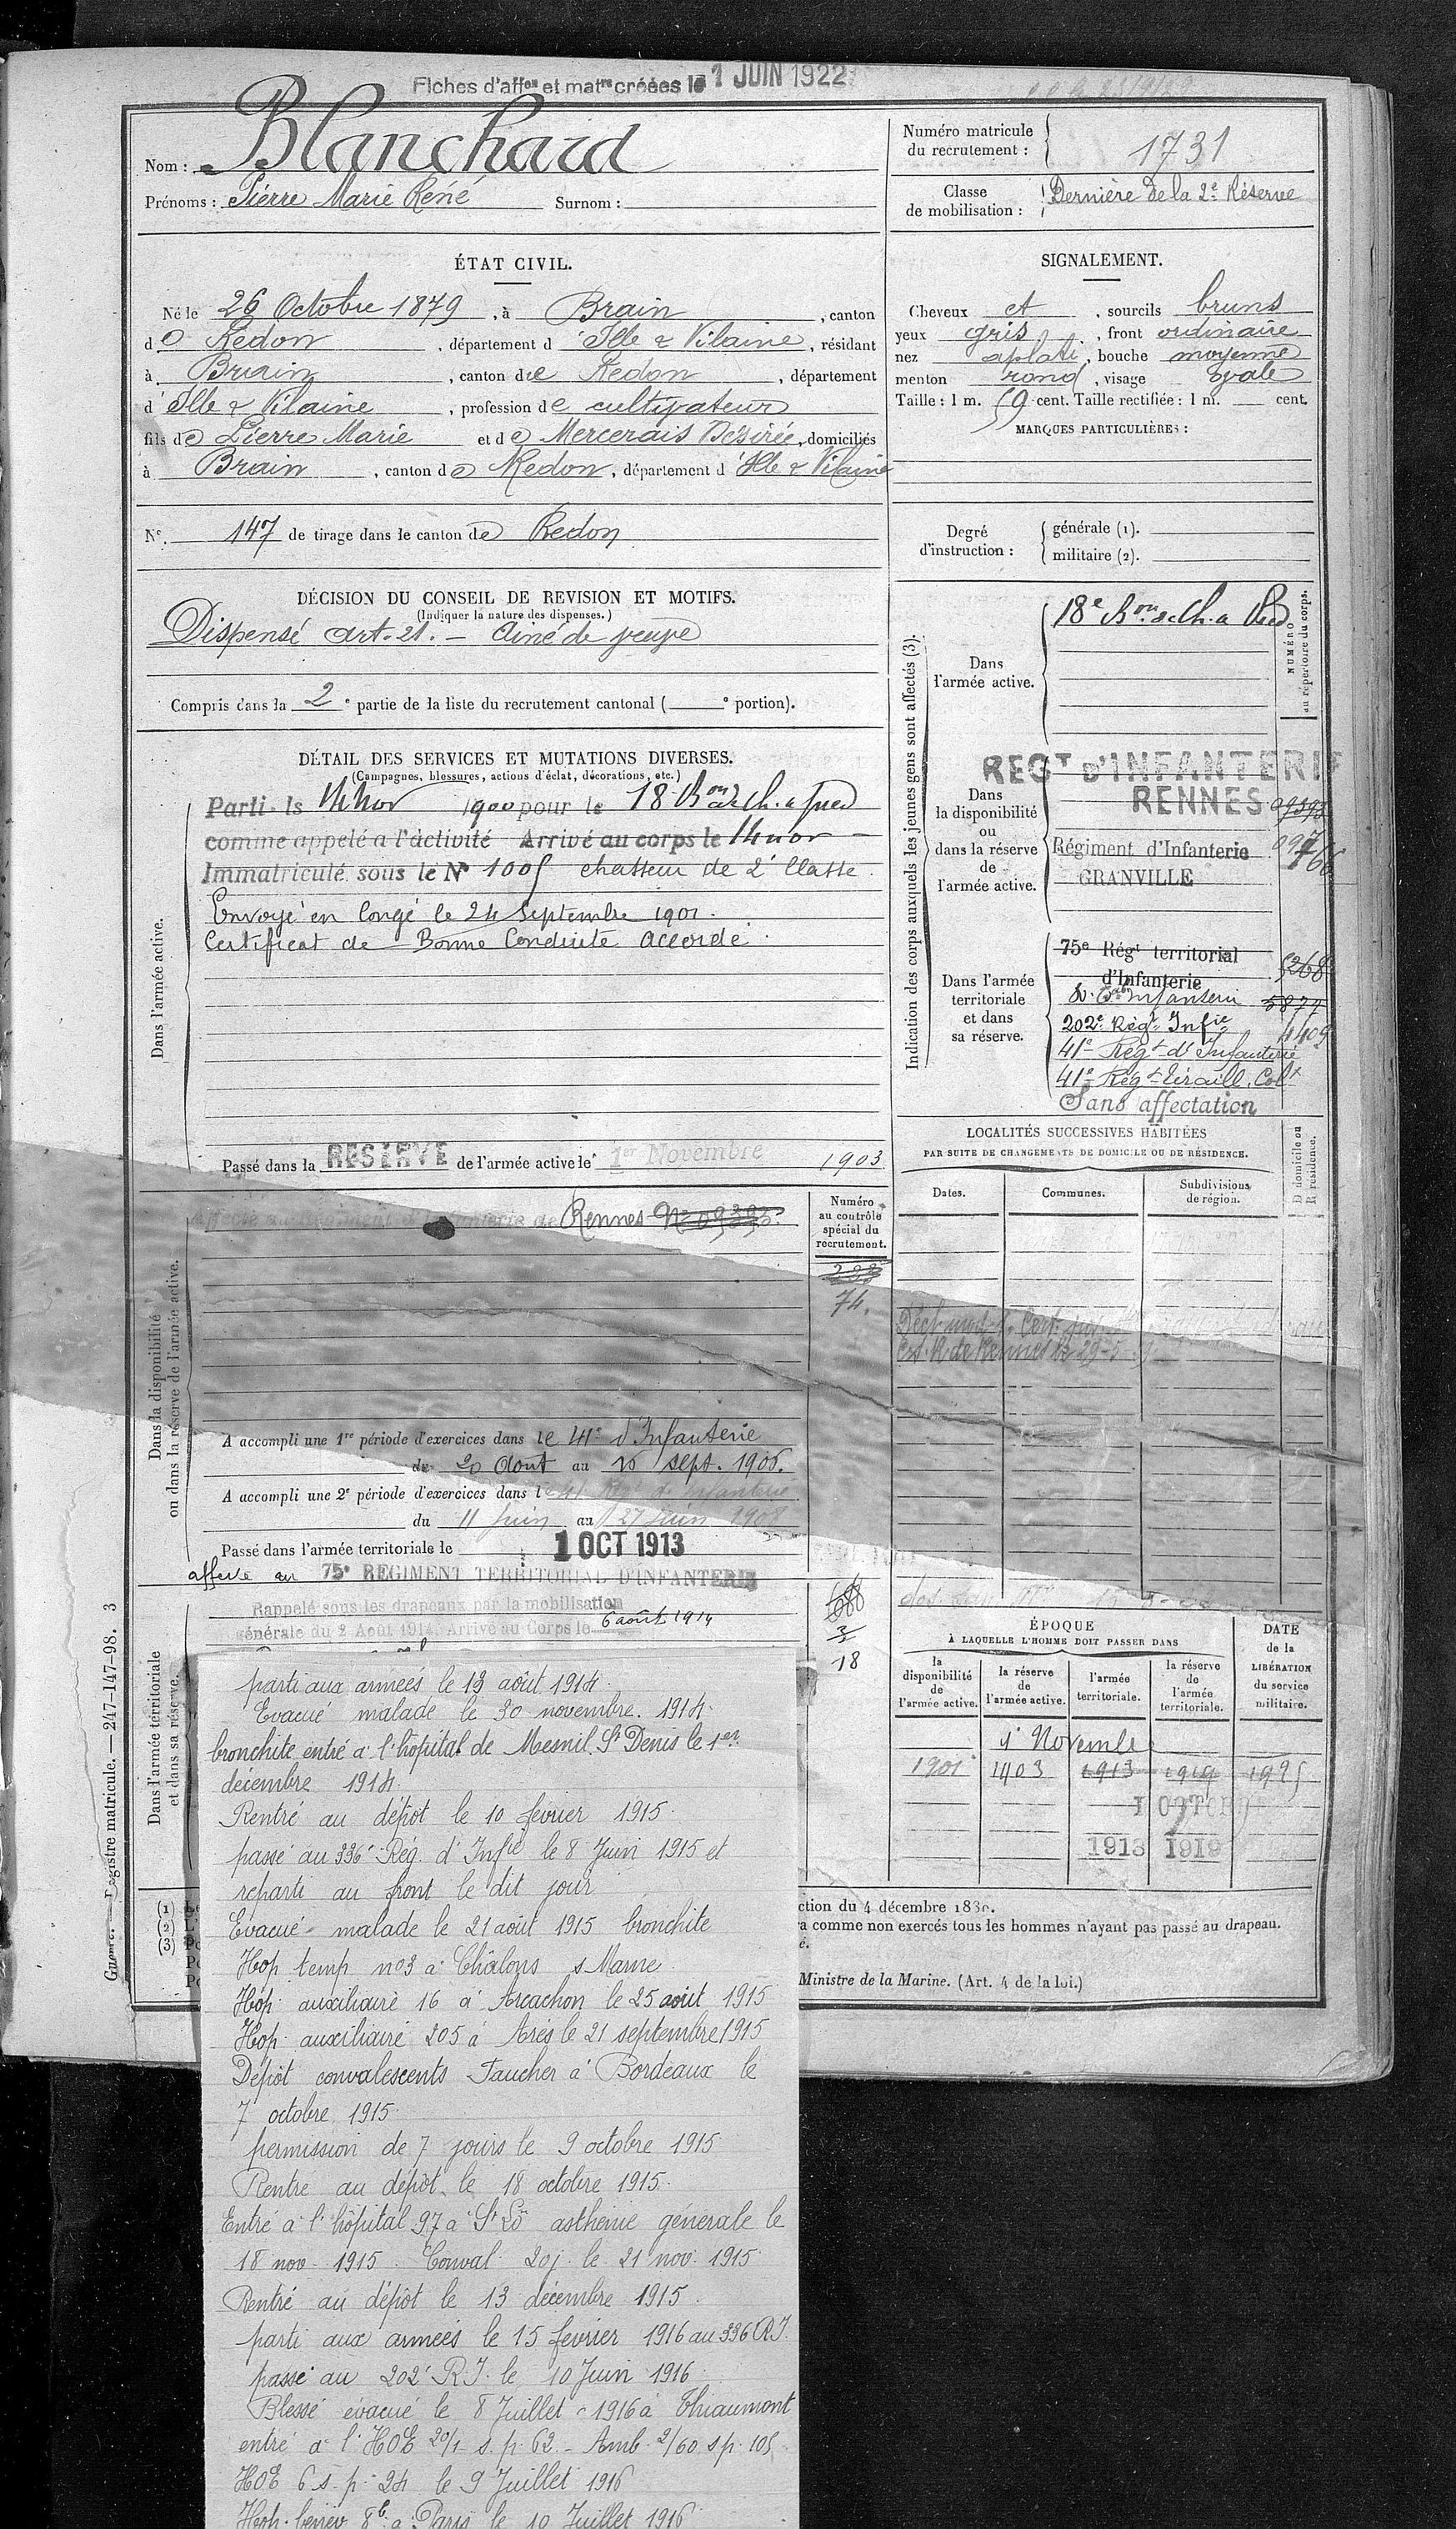 Fiches d'affon et matre créées le 1 JUIN 1922
Nom : Blanchard
Prénoms : Pierre Marie René Surnom :
Numéro matricule du recrutement : 1731
Classe de mobilisation : Dernière de la 2e Réserve
ÉTAT CIVIL.
Né le 26 Octobre 1879, à Brain, canton
de Redon, département d'Ille & Vilaine, résidant
à Brain, canton de Redon, département
d'Ille & Vilaine, profession de cultivateur
fils de Pierre Marie et de Mercerais Désirée, domiciliés
à Brain, canton de Redon, département d'Ille & Vilaine
No. 147 de tirage dans le canton de Redon
SIGNALEMENT.
Cheveux et, sourcils bruns
yeux gris, front ordinaire
nez aplati, bouche moyenne
menton rond, visage ovale
Taille : 1 m. 59 cent. Taille rectifiée : 1 m. cent.
MARQUES PARTICULIÈRES :
Degré d'instruction : générale (1).
militaire (2).
DÉCISION DU CONSEIL DE REVISION ET MOTIFS.
(Indiquer la nature des dispenses.)
Dispensé art. 21. – Ainé de veuve
Compris dans la 2e partie de la liste du recrutement cantonal ( e portion).
DÉTAIL DES SERVICES ET MUTATIONS DIVERSES.
(Campagnes, blessures, actions d'éclat, décorations, etc.)
Dans l'armée active.
Parti le 14 nov 1900 pour le 18 Bon de Ch. a pied
comme appelé a l'activité Arrivé au corps le 14 nov
Immatriculé sous le No 1005 chasseur de 2e Classe.
Envoyé en Congé le 24 Septembre 1901.
Certificat de Bonne Conduite Accordé.
Passé dans la RESERVE de l'armée active le 1er Novembre 1903
Indication des corps auxquels les jeunes gens sont affectés (3).
NUMÉRO au répertoire du corps.
Dans l'armée active.
18e Bon de Ch. a Pied
Dans la disponibilité ou dans la réserve de l'armée active.
REGT D'INFANTERIE
RENNES 09393
Régiment d'Infanterie
GRANVILLE
Dans l'armée territoriale et dans sa réserve.
75e Régt territorial
d'Infanterie 5268
5877
202e Régt Infie 4409
41e Régt d'Infanterie
41e Régt Tiraill. Colx
Sans affectation
LOCALITÉS SUCCESSIVES HABITÉES
PAR SUITE DE CHANGEMENTS DE DOMICILE OU DE RÉSIDENCE.
D domicile ou R résidence.
Dates. Communes. Subdivisions de région.
Dans la disponibilité ou dans la réserve de l'armée active.
Numéro au contrôle spécial du recrutement.
Rennes No 09393.
74.
A accompli une 1re période d'exercices dans le 41e d'Infanterie
de 20 Aout au 16 sept. 1906.
A accompli une 2e période d'exercices dans le 41 Régt de Infanterie
du 11 Juin au 27 Juin 1908
Passé dans l'armée territoriale le 1 OCT 1913
affecté au 75e REGIMENT TERRITORIAL D'INFANTERIE
Dans l'armée territoriale et dans sa réserve.
Rappelé sous les drapeaux par la mobilisation
générale du 2 Août 1914. Arrivé au Corps le 6 août 1914
3
18
parti aux armées le 13 août 1914.
Evacué malade le 30 novembre. 1914.
bronchite entré à l'hôpital de Mesnil St Denis le 1er
décembre 1914.
Rentré au dépôt le 10 février 1915.
passé au 336e Rég. d'Infie le 8 Juin 1915 et
reparti au front le dit jour
Evacué malade le 21 août 1915 bronchite
Hop temp no3 à Châlons s Marne
Hôp. auxiliaire 16 à Arcachon le 25 août 1915
Hop. auxiliaire 205 à Arès le 21 septembre 1915
Dépôt convalescents Faucher à Bordeaux le
7 octobre 1915.
permission de 7 jours le 9 octobre 1915
Rentré au dépôt le 18 octobre 1915.
Entré à l'hôpital 97 à St Lô asthénie générale le
18 nov. 1915. Conval. 20j. le 21 nov. 1915
Rentré au dépôt le 13 décembre 1915.
parti aux armées le 15 février 1916 au 336 R.I.
passé au 202e R.I. le 10 Juin 1916
Blessé évacué le 8 Juillet 1916 à Thiaumont
entré à l'HOE 20/1 s.p. 62 – Amb. 2/60 s.p. 105
HOE 6 s.p. 24 le 9 Juillet 1916
Hop. bénév 8b à Paris le 10 Juillet 1916
ÉPOQUE
À LAQUELLE L'HOMME DOIT PASSER DANS
DATE de la LIBÉRATION du service militaire.
la disponibilité de l'armée active. la réserve de l'armée active. l'armée territoriale. la réserve de l'armée territoriale.
1er Novembre
1901 1903 1913 1919 1925
1 OCTOBRE
1913 1919
(1)
(2)
(3)
ction du 4 décembre 1830.
a comme non exercés tous les hommes n'ayant pas passé au drapeau.
é.
Ministre de la Marine. (Art. 4 de la loi.)
Registre matricule. — 247-147-98. 3